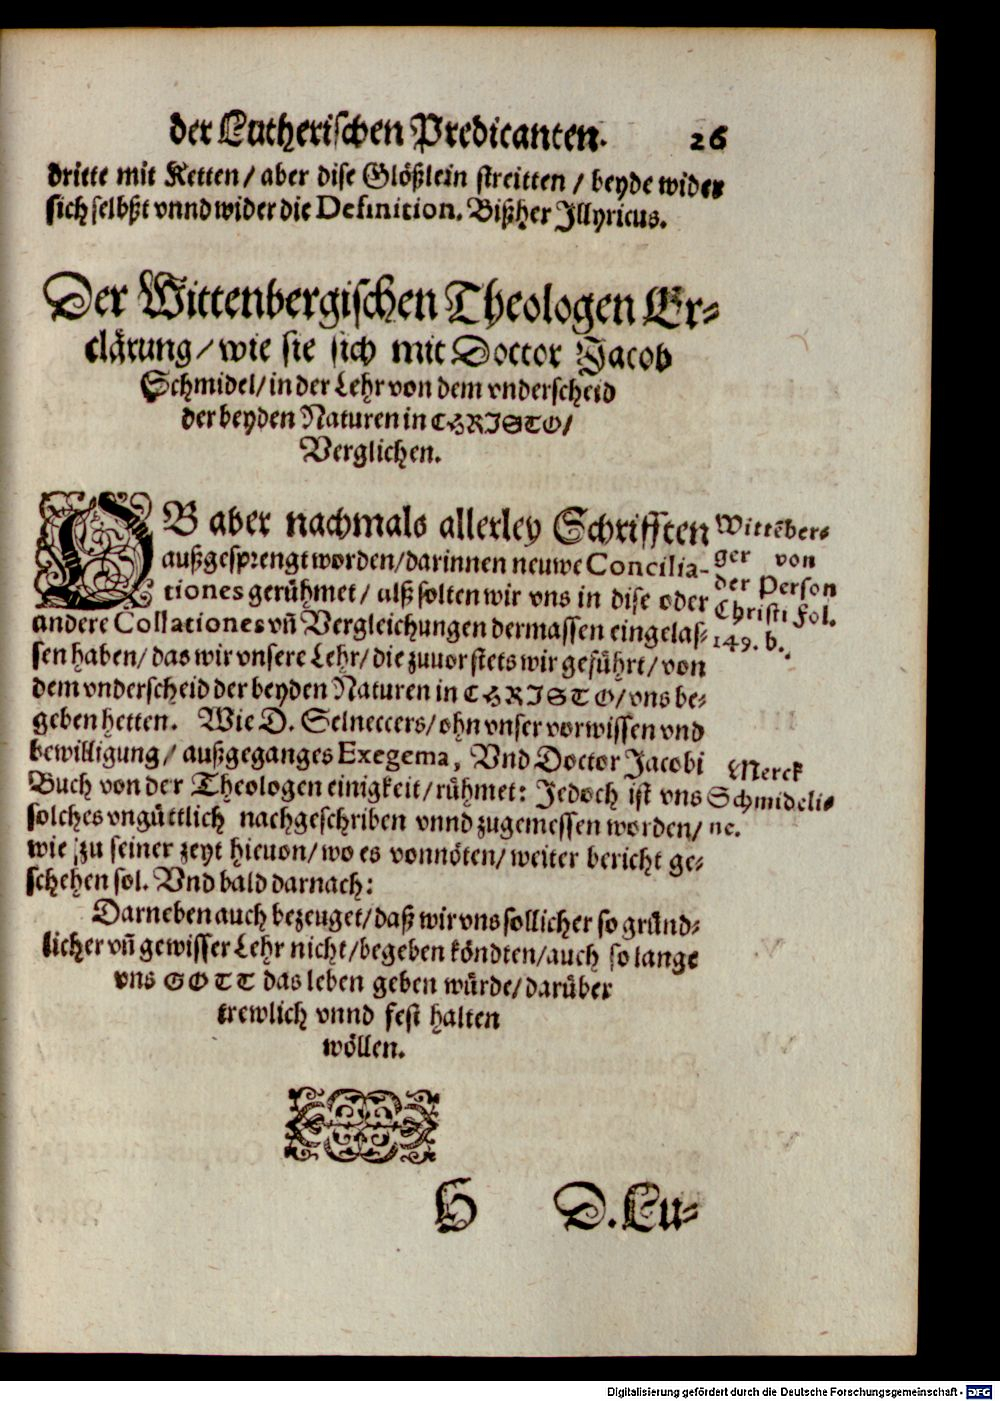 der Lutherischen Predicanten. 26
dritte mit Ketten/ aber dise Glößlein streitten / beyde wider
sich selbßt vnnd wider die Definition. Bißher Illyricus.
Der Wittenbergischen Theologen Er⸗
clärung/ wie sie sich mit Doctor Jacob
Schmidel/ in der Lehr von dem vnderscheid
der beyden Naturen in CHRISTO/
Verglichen.
OB aber nachmals allerley Schrifften
außgesprengt worden/ darinnen neuwe Concilia-
tiones gerühmet/ alß solten wir vns in dise oder
andere Collationes vñ Vergleichungen dermassen eingelas⸗
sen haben/ das wir vnsere Lehr/ die zuuor stets wir geführt/ von
dem vnderscheid der beyden Naturen in CHRISTO/ vns be⸗
geben hetten. Wie D. Selneccers/ ohn vnser vorwissen vnd
bewilligung/ außgeganges Exegema, Vnd Doctor Jacobi
Buch von der Theologen einigkeit/ rühmet: Jedoch ist vns
solches vngüttlich nachgeschriben vnnd zugemessen worden/
wie zu seiner zeyt hieuon/ wo es vonnöten/ weiter bericht ge⸗
schehen sol. Vnd bald darnach:
Darneben auch bezeuget/ daß wir vns sollicher so gründ⸗
licher vñ gewisser Lehr nicht/ begeben köndten/ auch so lange
vns GOTT das leben geben würde/ darüber
trewlich vnnd fest halten
wöllen.
Wittēber⸗
ger von
der Person
Christi Fol.
149. b.
Merck
Schmideli⸗
ne.
H D. Lu⸗
Digitalisierung gefördert durch die Deutsche Forschungsgemeinschaft - DFG